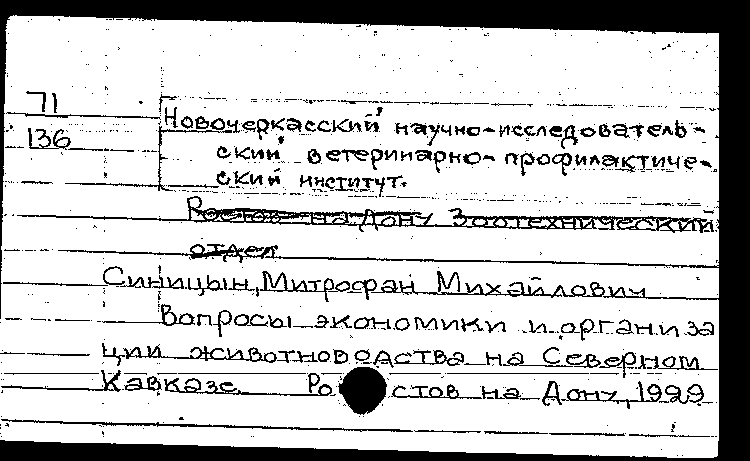 71
136
Новочеркасский научно-исследователь-
ский ветеринарно-профилактиче-
ский институт.
Ростов на Дону Зоотехнический
отдел
Синицын, Митрофан Михайлович
Вопросы экономики и организа
ции животноводства на Северном
Кавказе Ростов на Дону, 1929